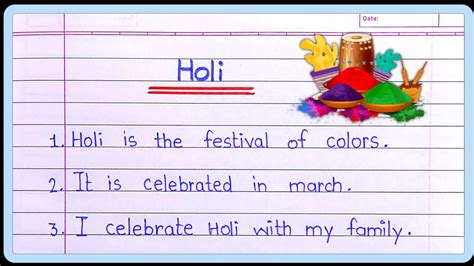 Date:
Holi
1. Holi is the festival of colors.
2. It is celebrated in march.
3. I celebrate Holi with my family.